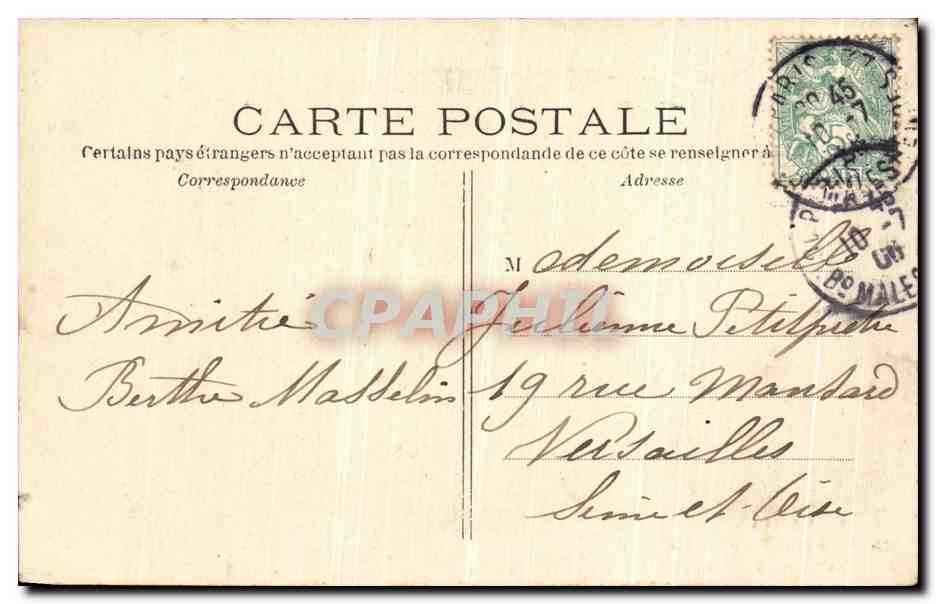 CARTE POSTALE
Certains pays étrangers n'acceptant pas la correspondande de ce côte se renseigner à
Correspondance
Adresse
Amitié
Berthe Masselin
Mademoiselle
Julienne Petitpierre
19 rue Mansard
Versailles
Seine et-Oise
CPAPHIL
PARIS
10
Bd MALES